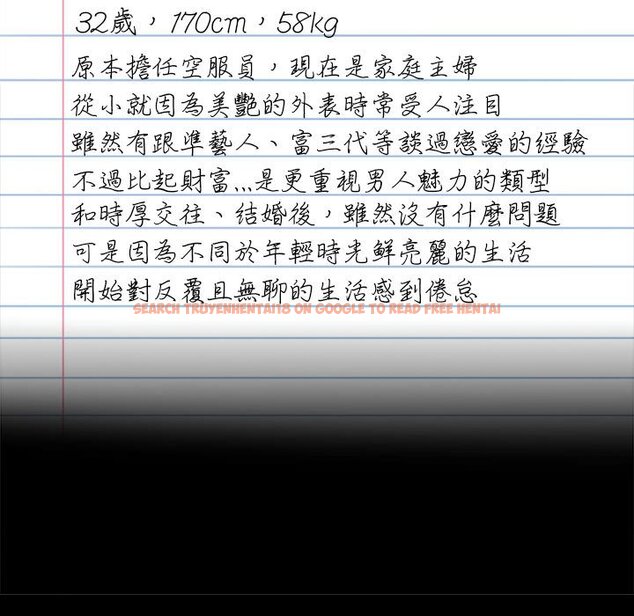 32歲，170cm，58kg
原本擔任空服員，現在是家庭主婦
從小就因為美艷的外表時常受人注目
雖然有跟準藝人、富三代等談過戀愛的經驗
不過比起財富...是更重視男人魅力的類型
和時厚交往、結婚後，雖然沒有什麼問題
可是因為不同於年輕時光鮮亮麗的生活
開始對反覆且無聊的生活感到倦怠
SEARCH TRUYENHENTAI18 ON GOOGLE TO READ FREE HENTAI